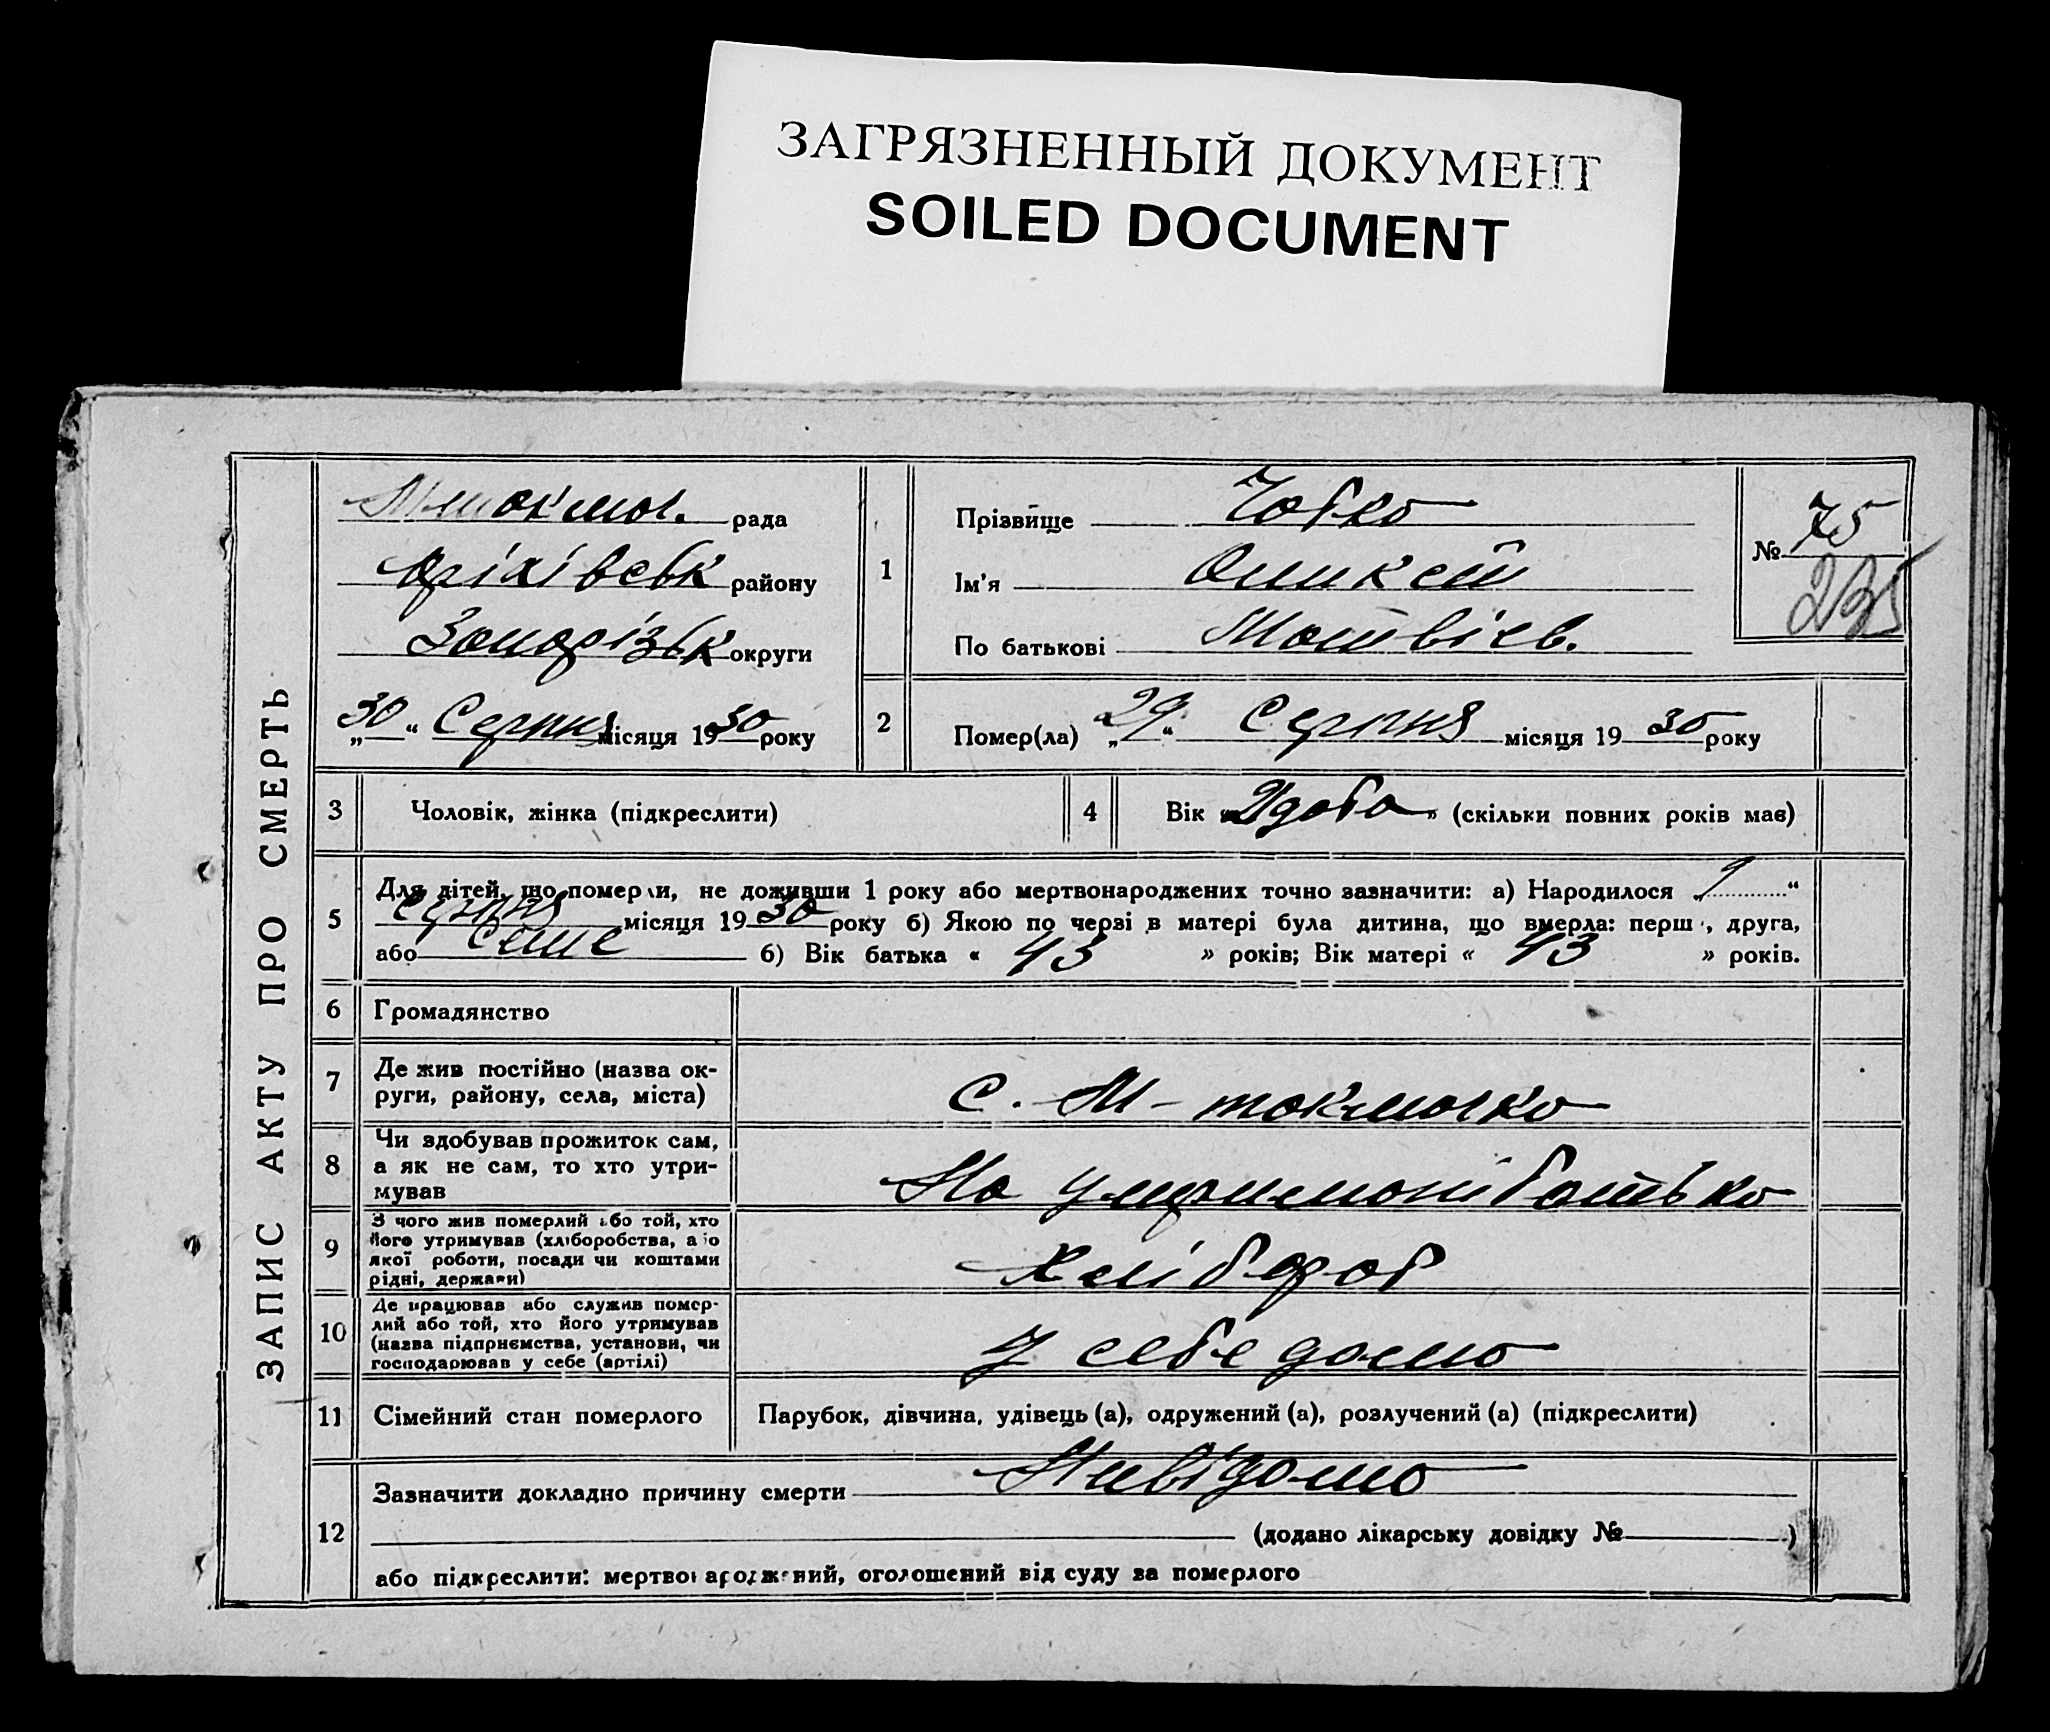 ЗАГРЯЗНЕННЫЙ ДОКУМЕНТ
SOILED DOCUMENT
ЗАПИС АКТУ ПРО СМЕРТЬ
рада
Оріхівськ району
Запорізьк округи
„30“ Серпня місяця 1930 року
1
Прізвище
Ім'я Олексій
По батькові Матвієв.
№ 75
2
Помер(ла) „29“ Серпня місяця 1930 року
3 Чоловік, жінка (підкреслити)
4 Вік « доба » (скільки повних років має)
5 Для дітей, що померли, не доживши 1 року або мертвонароджених точно зазначити: а) Народилося „ “
Серпня місяця 1930 року б) Якою по черзі в матері була дитина, що вмерла: перша, друга,
або семе б) Вік батька « 43 » років; Вік матері « 43 » років.
6 Громадянство
7 Де жив постійно (назва ок-
руги, району, села, міста)
с. М-токмачка
8 Чи здобував прожиток сам,
а як не сам, то хто утри-
мував
На утримані батька
9 З чого жив померлий або той, хто
його утримував (хліборобства, або
якої роботи, посади чи коштами
рідні, держави)
Хлібороб
10 Де працював або служив помер-
лий або той, хто його утримував
(назва підприємства, установи, чи
господарював у себе (артілі)
У себе дома
11 Сімейний стан померлого
Парубок, дівчина, удівець (а), одружений (а), розлучений (а) (підкреслити)
12 Зазначити докладно причину смерти Невідомо
(додано лікарську довідку № )
або підкреслити: мертвонароджений, оголошений від суду за померлого